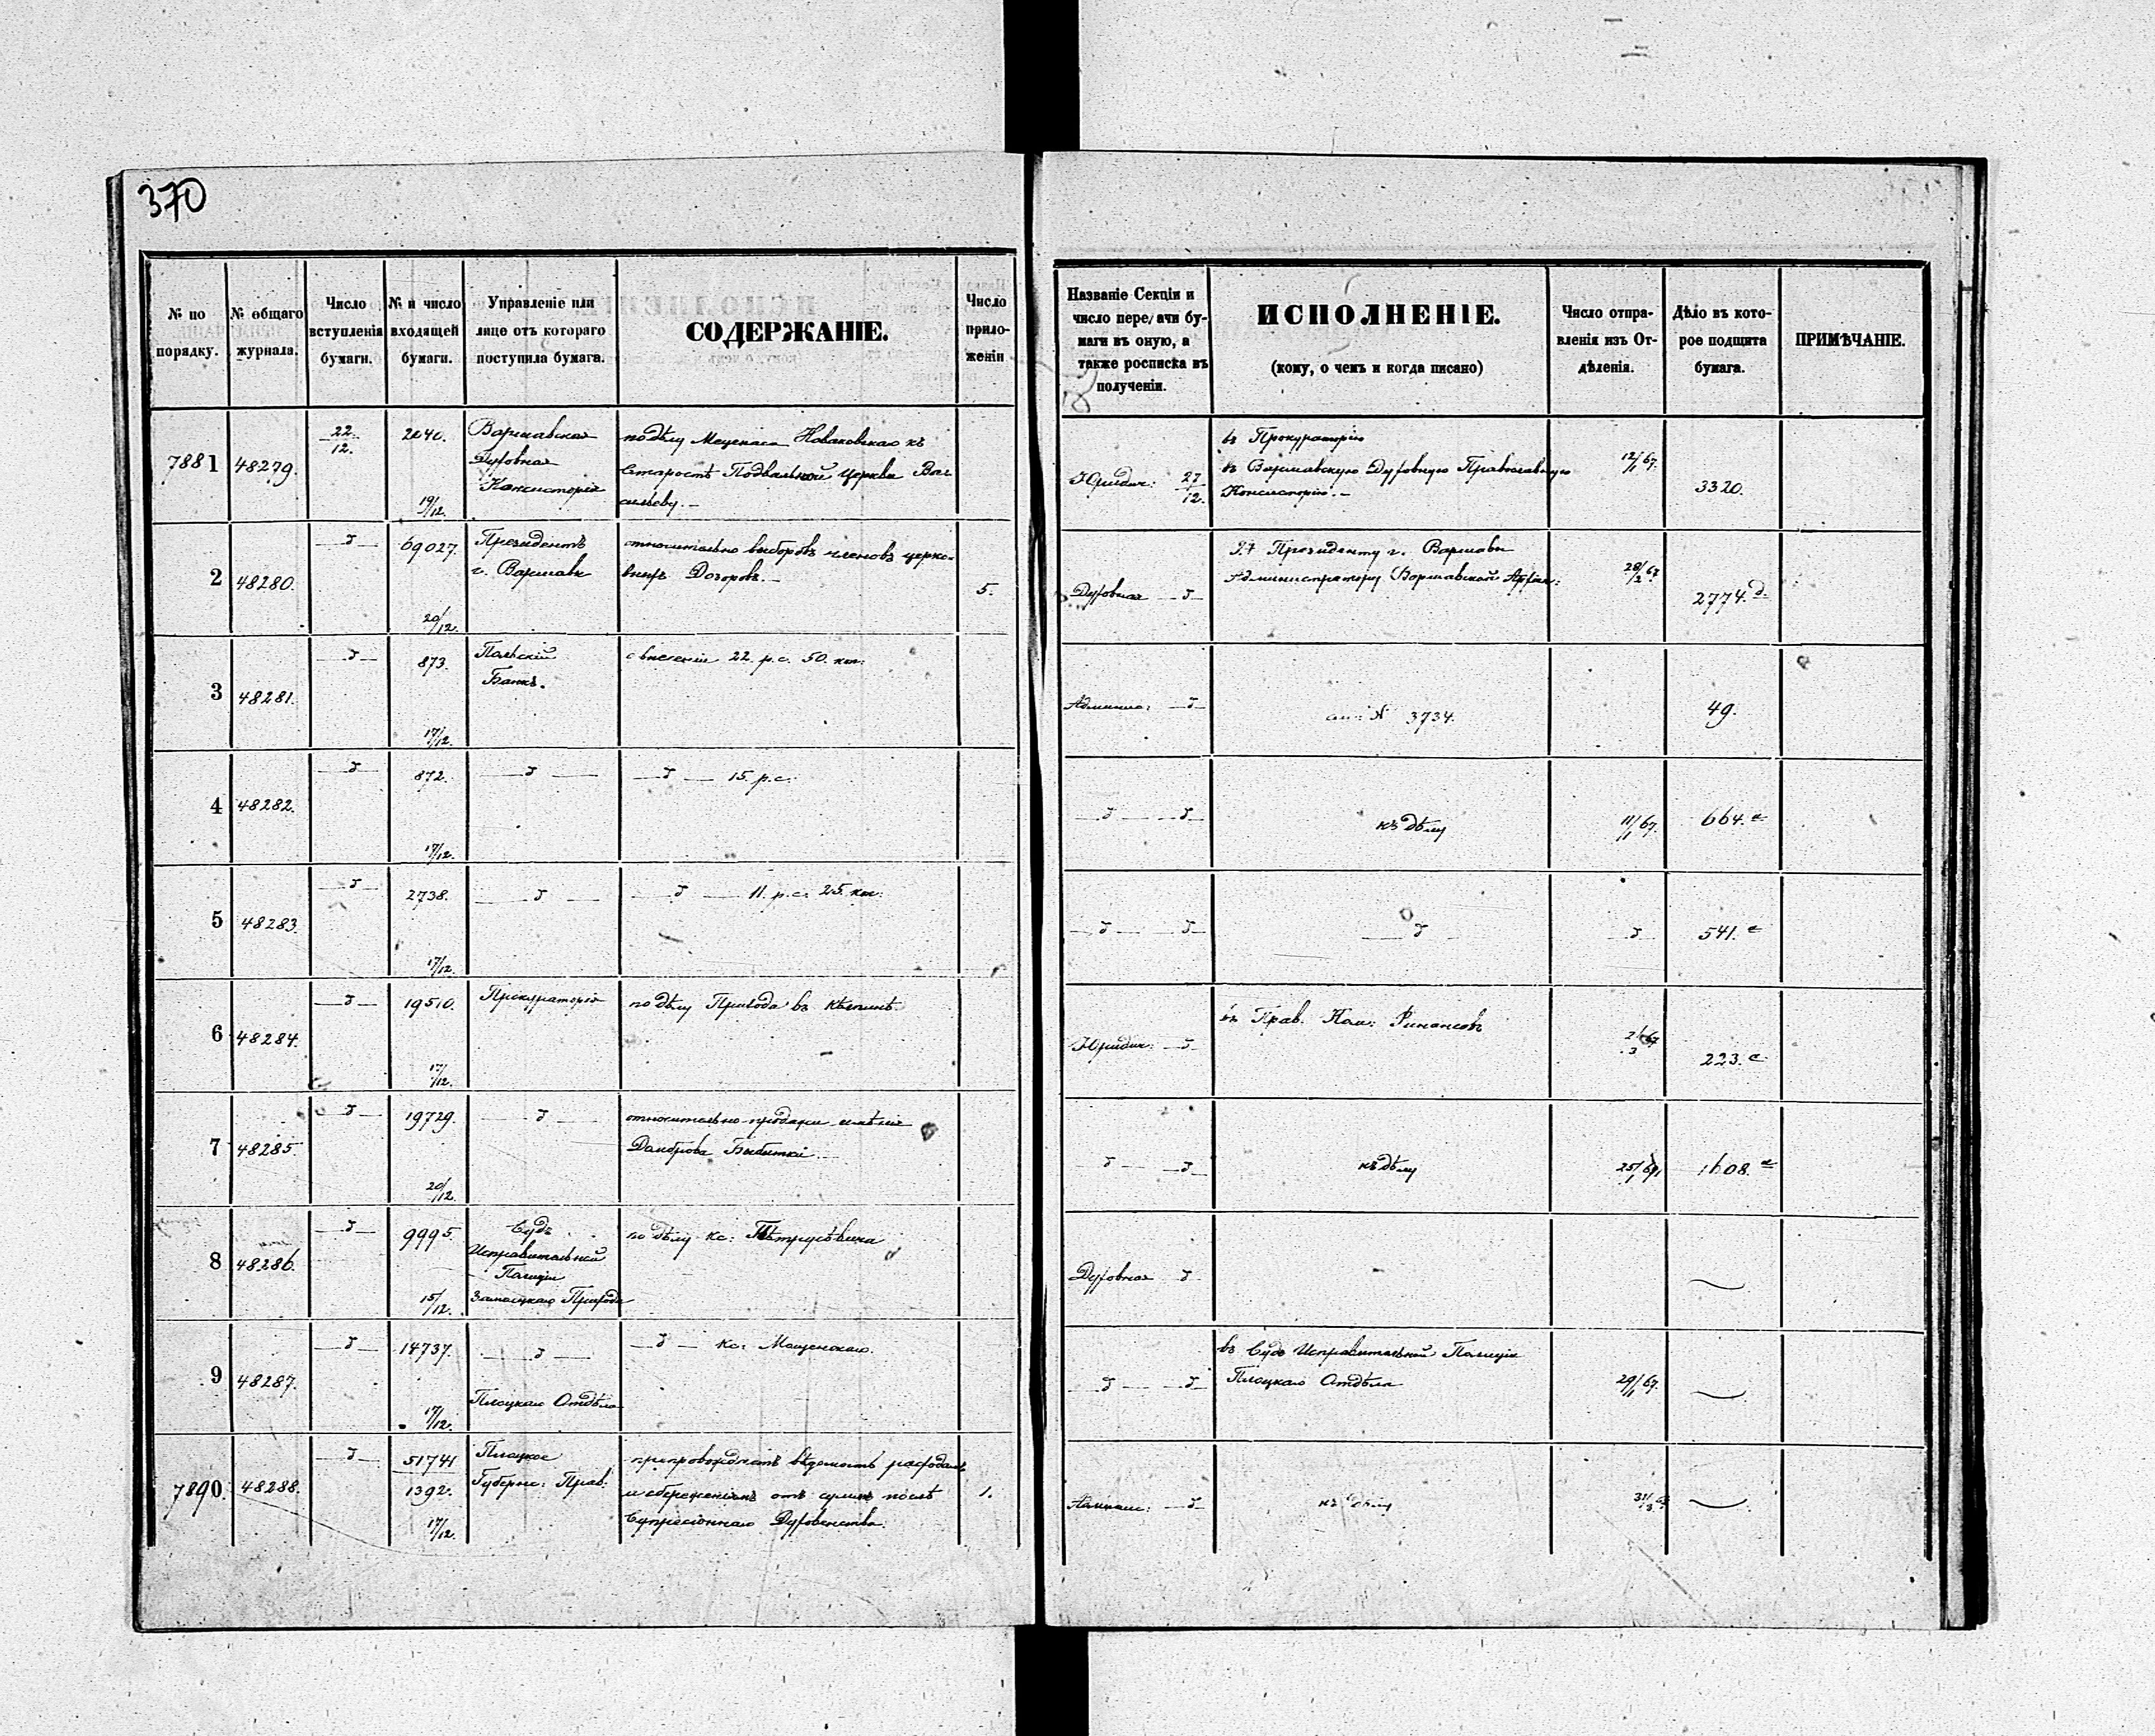 370
№ по порядку.
№ общаго журнала.
Число вступленія бумаги.
№ и число входящей бумаги.
Управленіе или лице отъ котораго поступила бумага.
СОДЕРЖАНІЕ.
Число приложеній
Названіе Секціи и число передачи бумаги въ оную, а также росписка въ полученіи.
ИСПОЛНЕНІЕ.
(кому, о чемъ и когда писано)
Число отправленія изъ Отдѣленія.
Дѣло въ которое подшита бумага.
ПРИМѢЧАНІЕ.
7881 48279. 22/12. 2040. 19/12.
Варшавская
Духовная
Консисторія
по дѣлу Меценаса Новаковскаго къ
Старостѣ Подвальной церкви Ва
сильеву. –
Юридич: 27/12.
въ Прокураторію
въ Варшавскую Духовную Православную
Консисторію. –
12/1 67. 3320.
2 48280. 69027. 20/12.
Президентъ
г. Варшавы
относительно выборовъ членовъ церко-
вныхъ Дозоровъ. –
5.
Духовная
Президенту г. Варшавы
Администратору Варшавской Архіеп:
28/2 67. 2774. д.
3 48281. 873. 17/12.
Польскій
Банкъ.
о внесеніи 22. р. с. 50. коп.
№ 3734.
49.
4 48282. 872. 17/12.
15. р. с.
къ дѣлу
11/1 67. 664. а
5 48283. 2738. 17/12.
11. р. с. 25. коп.
541. а
6 48284. 19510. 17/12.
Прокураторія
по дѣлу Прихода въ
Юридич:
въ Прав. Ком: Финансовъ
223. с
7 48285. 19729. 20/12.
относительно продажи имѣнія
Домброва
къ дѣлу
25/1 67. 1608. а
8 48286. 9995. 15/12.
Судъ
Исправительной
Полиціи
по дѣлу кс:
Духовная
9 48287. 14737. 17/12.
Плоцкаго Отдѣла
кс:
въ Судъ Исправительной Полиціи
Плоцкаго Отдѣла
29/1 67.
7890. 48288. 51741 1392. 17/12.
Плоцкое
Губернс: Прав:
препровождаетъ вѣдомость расходамъ
и сбереженіямъ отъ суммъ послѣ
Супресіоннаго Духовенства.
1.
къ дѣлу